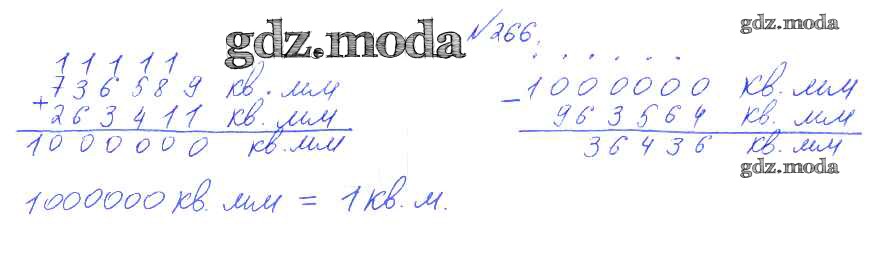 №266.
gdz.moda
gdz.moda
1 1 1 1 1
736589 кв. мм
+
263411 кв. мм
1000000 кв. мм
1000000 кв. мм = 1 кв. м.
1000000 кв. мм
-
963564 кв. мм
36436 кв. мм
gdz.moda